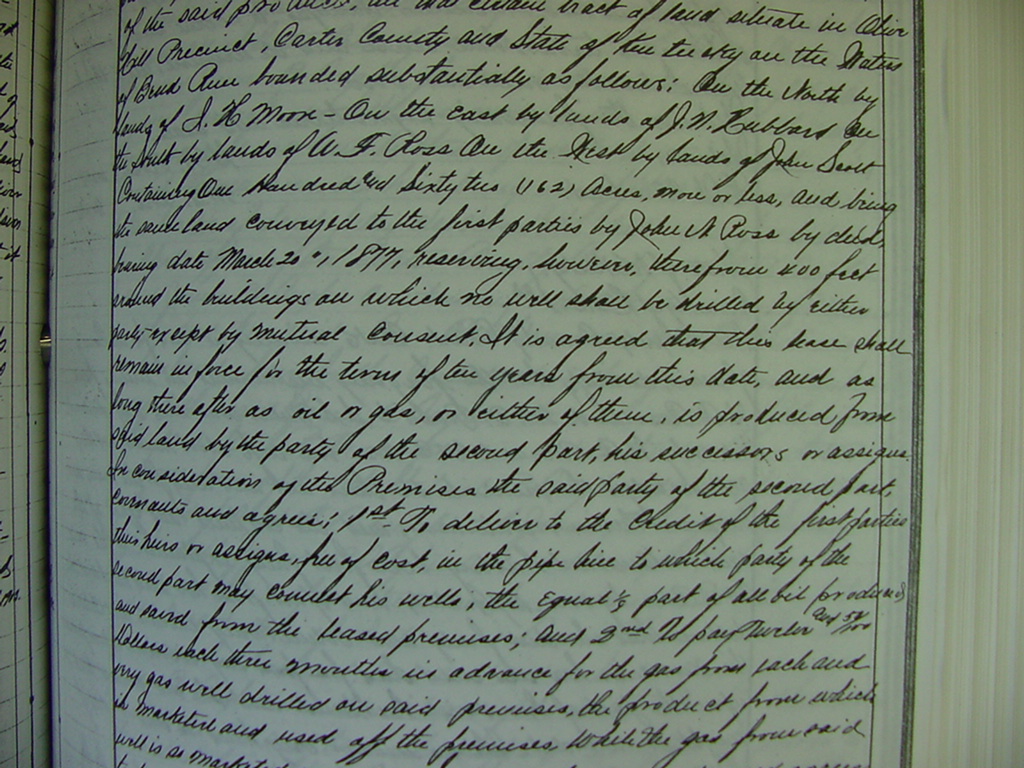 of the said produce, all that certain tract of land situate in Olive
Hill Precinct, Carter County and State of Kentucky on the Waters
of Brush Run bounded substantially as follows: On the North by
lands of J. H Moore - On the east by lands of J. N. Hubbard On
the South by lands of W. F. Ross On the West by lands of John Scott
Containing One Hundred and Sixty two (162) Acres, more or less, and being
the same land conveyed to the first parties by John N Ross by deed,
bearing date March 20", 1877, reserving, however, therefrom 400 feet
around the buildings on which no well shall be drilled by either
party except by mutual consent. It is agreed that this lease shall
remain in force for the term of ten years from this date, and as
long there after as oil or gas, or either of them, is produced from
said land by the party of the second part, his successors or assigns.
In consideration of the Premises the said party of the second part,
covenants and agrees; 1st To deliver to the Credit of the first parties
their heirs or assigns, free of cost, in the pipe line to which party of the
second part may connect his wells, the equal 1/8 part of all oil produced
and saved from the leased premises; and 2nd To pay Twelve and 50/100
Dollars each three months in advance for the gas from each and
every gas well drilled on said premises, the product from which
is marketed and used off the premises, While the gas from said
well is so marketed